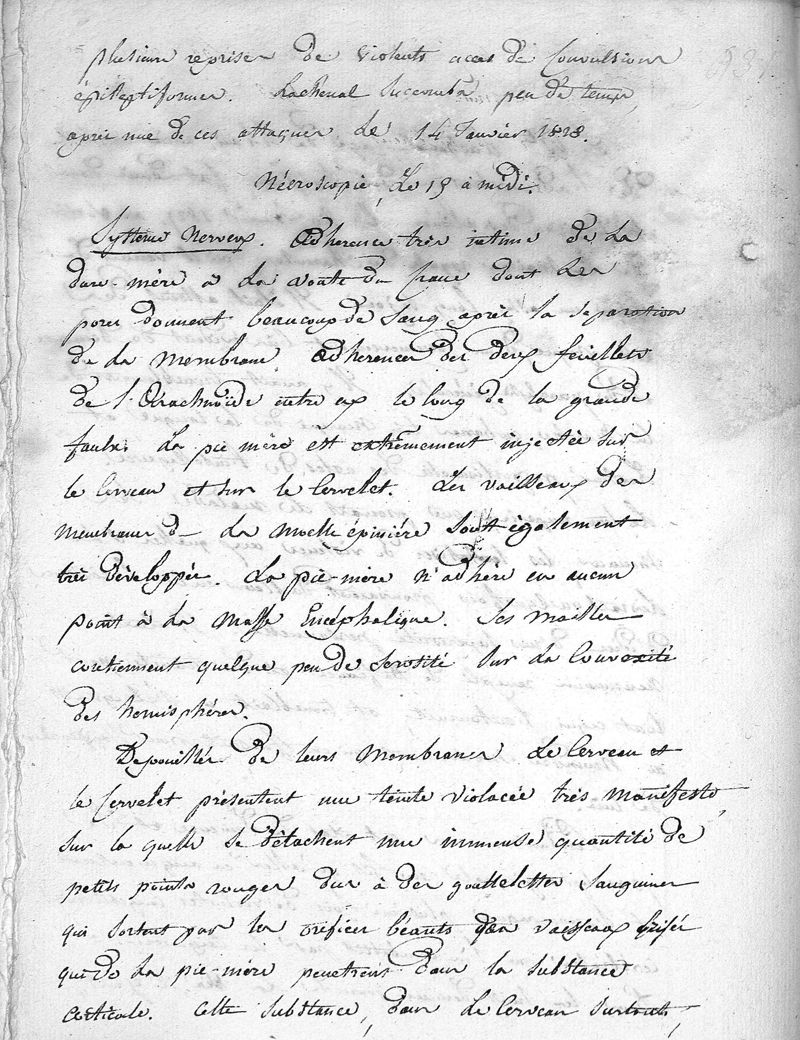 plusieurs reprises de violents accès de convulsions
épileptiformes. Lachenal succomba peu de temps,
après une de ces attaques le 14 Janvier 1818.
Nécroscopie, Le 15 à midi.
Système Nerveux. Adherence très intime de la
dure-mère à la voute du crane dont les
pores donnent beaucoup de sang après la separation
de la membrane. Adherences des deux feuillets
de l'Arachnoïde entre eux le long de la grande
faulx. La pie mère est extrêmement injectée sur
le cerveau et sur le cervelet. Les vaisseaux des
membranes de la moelle épinière sont également
très développés. La pie-mère n'adhère en aucun
point à la masse Encéphalique. Ses mailles
contiennent quelque peu de serosité sur la convexité
des hemisphères.
Depouillés de leurs membranes le cerveau et
le cervelet présentent une teinte violacée très manifeste
sur la quelle se détachent une immense quantité de
petits points rouges dus à des gouttelettes sanguines
qui sortent par les orifices béants des vaisseaux brisés
qui de la pie-mère penetrent dans la substance
corticale. Cette substance, dans le cerveau surtout,